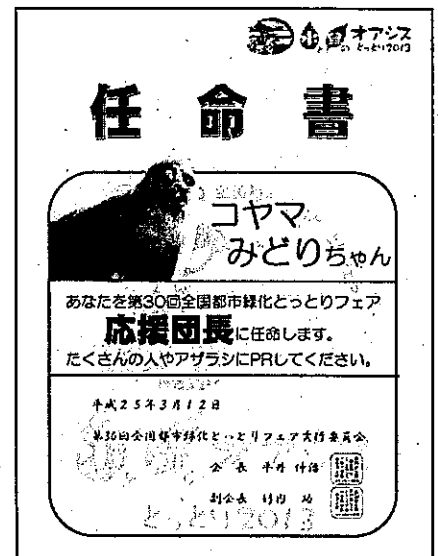 オアシス
とっとり2013
任命書
コヤマ
みどりちゃん
あなたを第30回全国都市緑化とっとりフェア
応援団長に任命します。
たくさんの人やアザラシにPRしてください。
平成25年3月12日
第30回全国都市緑化とっとりフェア実行委員会
会長 平井 伸治
副会長 竹内 功
とっとり2013